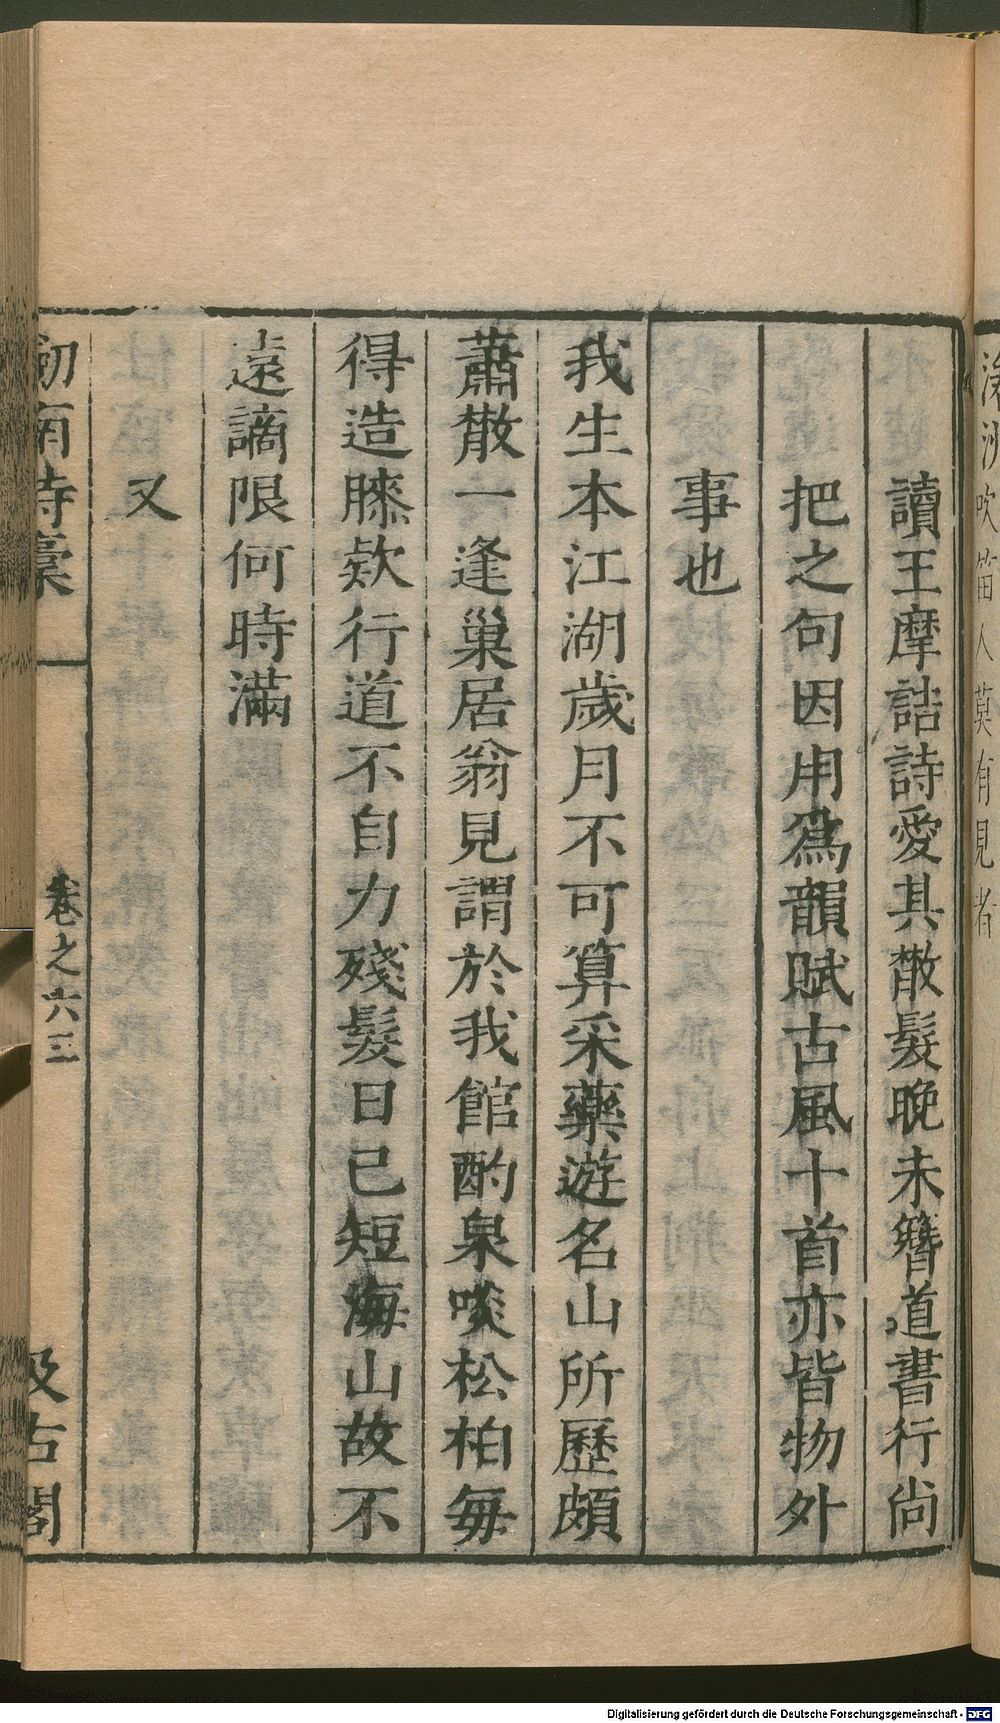 讀王摩詰詩愛其散髮晚未簪道書行尚
把之句因用爲韻賦古風十首亦皆物外
事也
我生本江湖歲月不可算采藥遊名山所歷頗
蕭散一逢巢居翁見謂於我館酌泉啖松柏每
得造膝欵行道不自力殘髮日已短海山故不
遠謫限何時滿
又
劒南詩稾
卷之六
三
汲古閣
沙吹笛人莫有見者
Digitalisierung gefördert durch die Deutsche Forschungsgemeinschaft - DFG